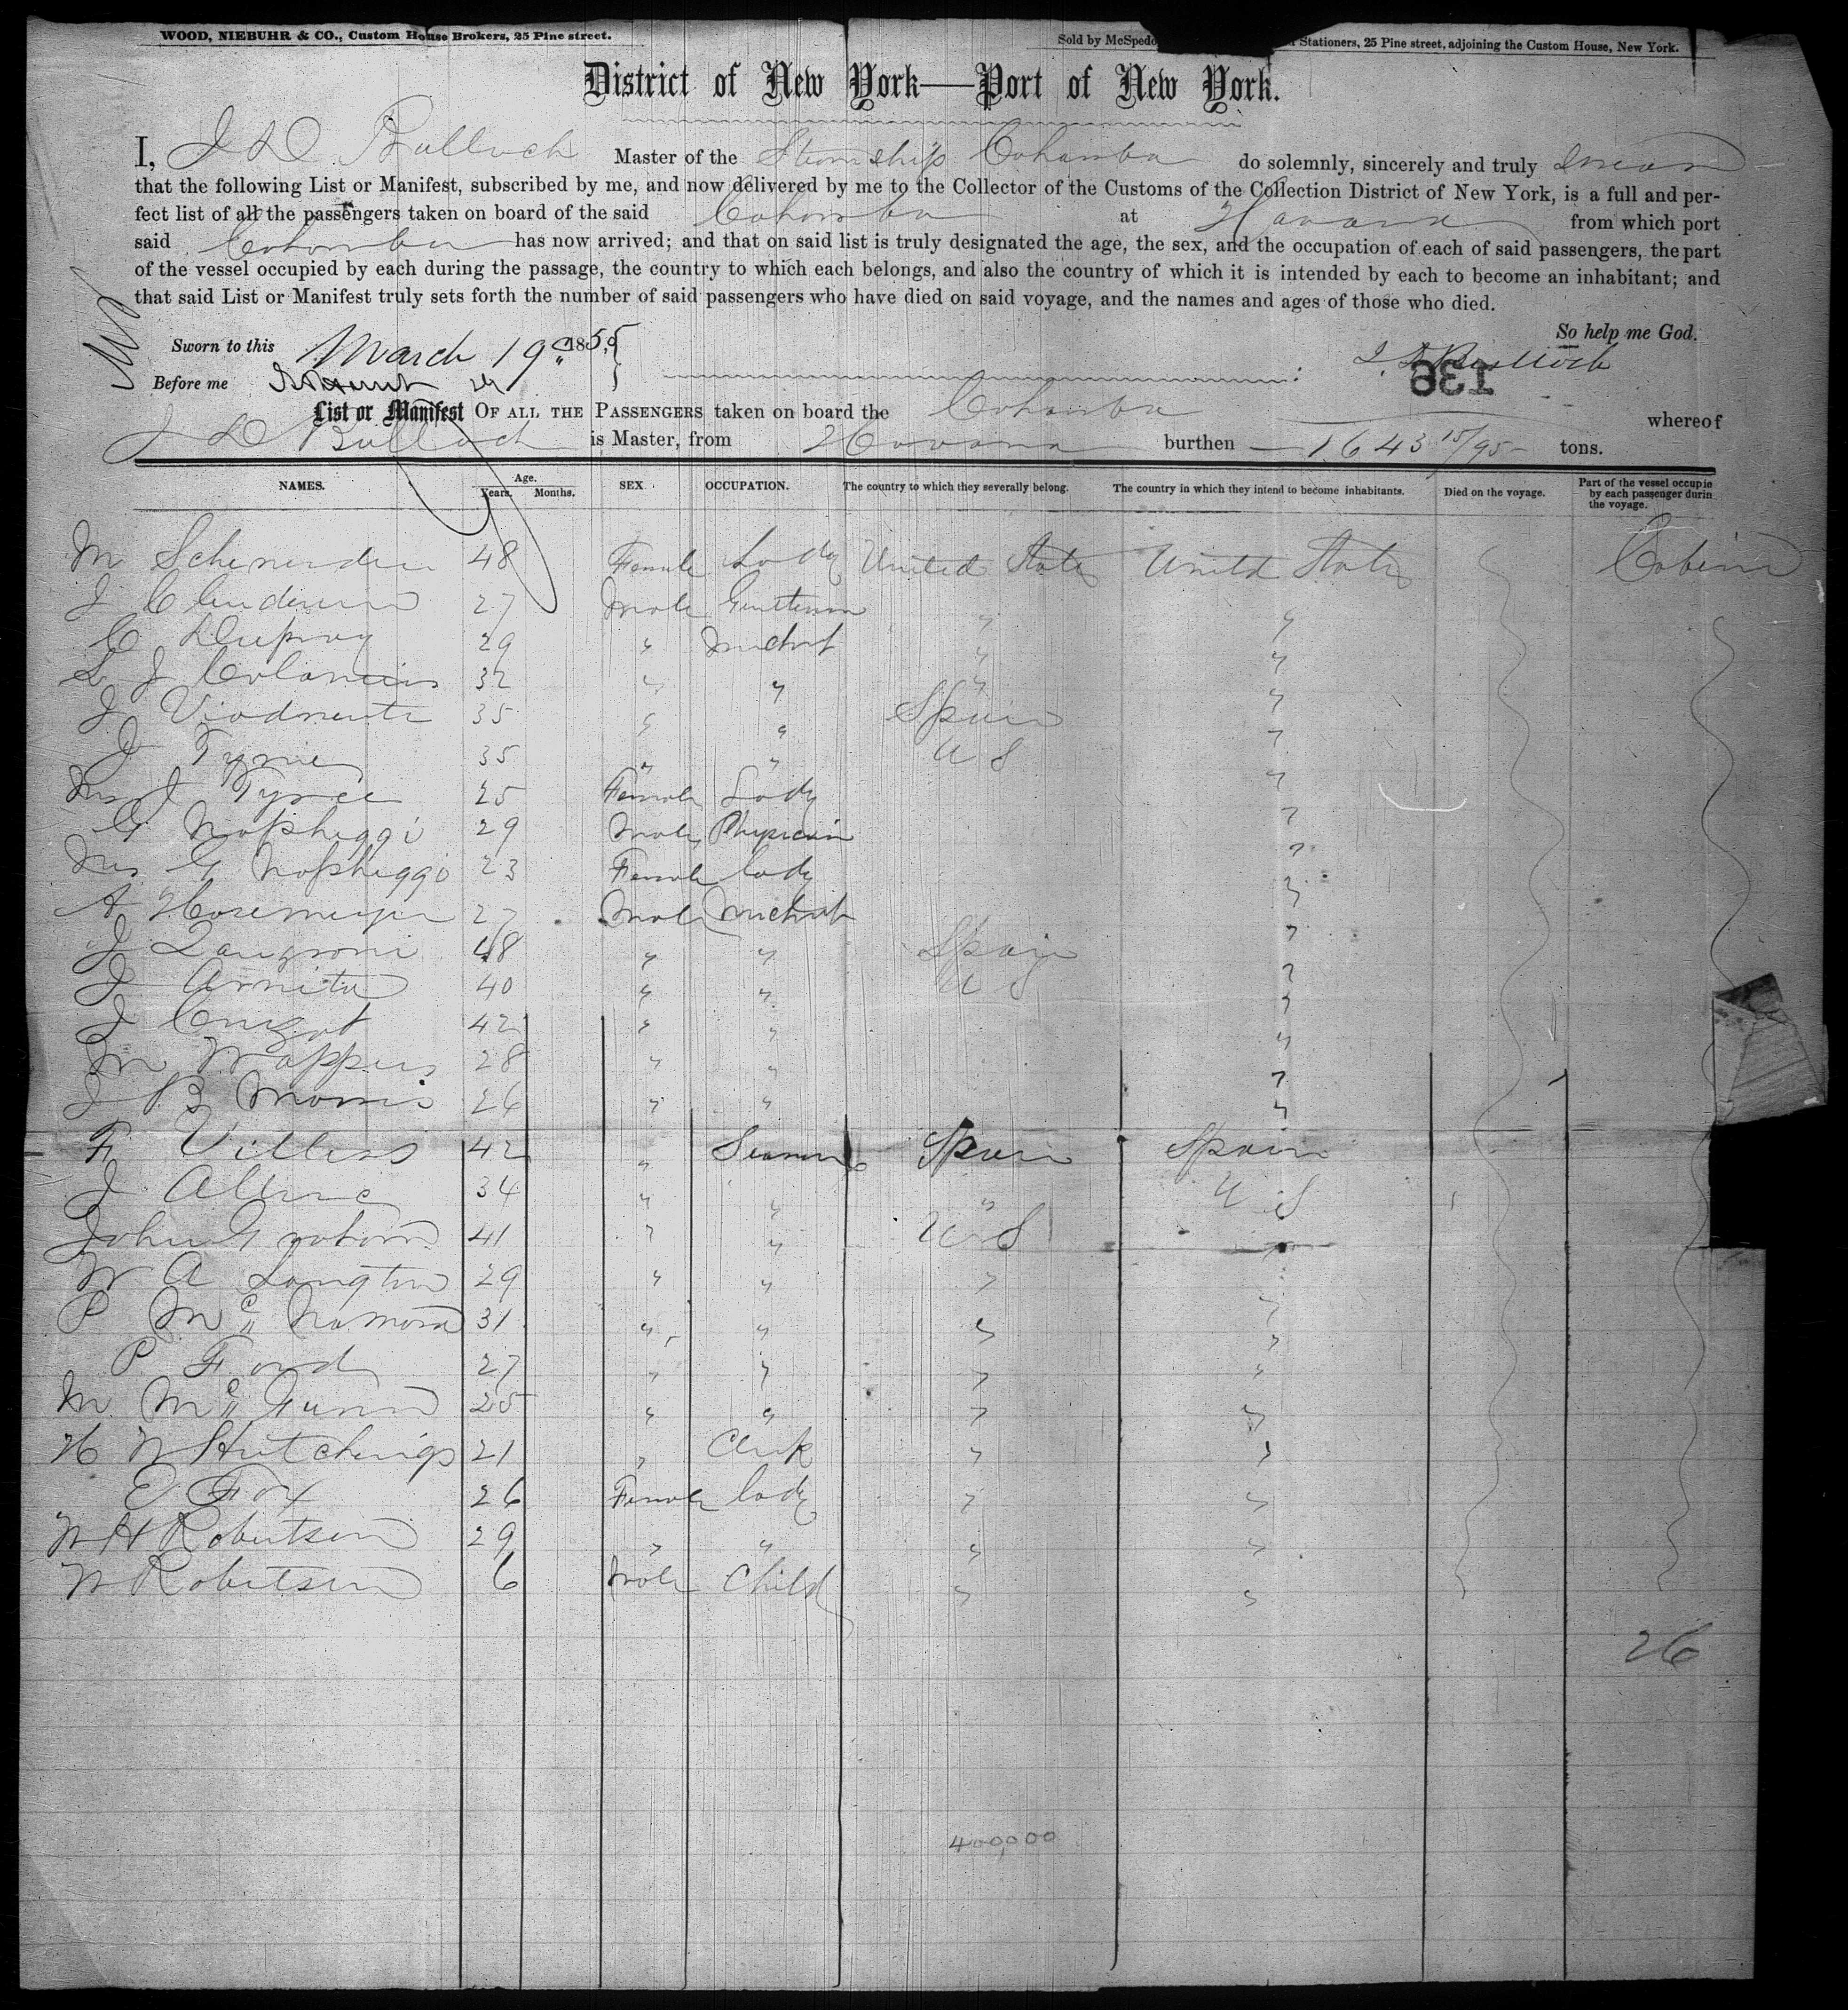 WOOD, NIEBUHR & CO., Custom House Brokers, 25 Pine street. Sold by McSpedo Stationers, 25 Pine street, adjoining the Custom House, New York.
District of New York—Port of New York.
I, J D Bulloch Master of the Steamship Cahawba do solemnly, sincerely and truly swear
that the following List or Manifest, subscribed by me, and now delivered by me to the Collector of the Customs of the Collection District of New York, is a full and per-
fect list of all the passengers taken on board of the said Cahawba at Havana from which port
said Cahawba has now arrived; and that on said list is truly designated the age, the sex, and the occupation of each of said passengers, the part
of the vessel occupied by each during the passage, the country to which each belongs, and also the country of which it is intended by each to become an inhabitant; and
that said List or Manifest truly sets forth the number of said passengers who have died on said voyage, and the names and ages of those who died.
So help me God.
Sworn to this March 19 1855
J. D. Bulloch
Before me
136
List or Manifest OF ALL THE PASSENGERS taken on board the Cahawba whereof
J D Bulloch is Master, from Havana burthen 1643 15/95 tons.
NAMES. Age. Years. Months. SEX. OCCUPATION. The country to which they severally belong. The country in which they intend to become inhabitants. Died on the voyage. Part of the vessel occupie by each passenger durin the voyage.
M 48 Female Lady United States United States Cabin
J 27 Male Gentleman " "
C Dupray 29 " Mercht " "
L J 32 " " " "
J 35 " " Spain "
J Tynie 35 " " U S "
Mrs J Tynie 25 Female Lady "
G 29 Male Physician "
Mrs G 23 Female Lady "
A 27 Male Mercht "
J 48 " " Spain "
J Arnita 40 " " U S "
J 42 " " "
M 28 " " "
J B Morris 26 " " "
F 42 " Seaman Spain Spain
J 34 " " " U S
John Graham 41 " " U S "
W A Langton 29 " " " "
P Mc Namara 31 " " " "
P Ford 27 " " " "
M Mc Gunn 25 " " " "
H W Hutchings 21 " Clerk " "
E Fox 26 Female Lady " "
W H Robertson 29 " " " "
W Robertson 6 Male Child " "
26
400,000